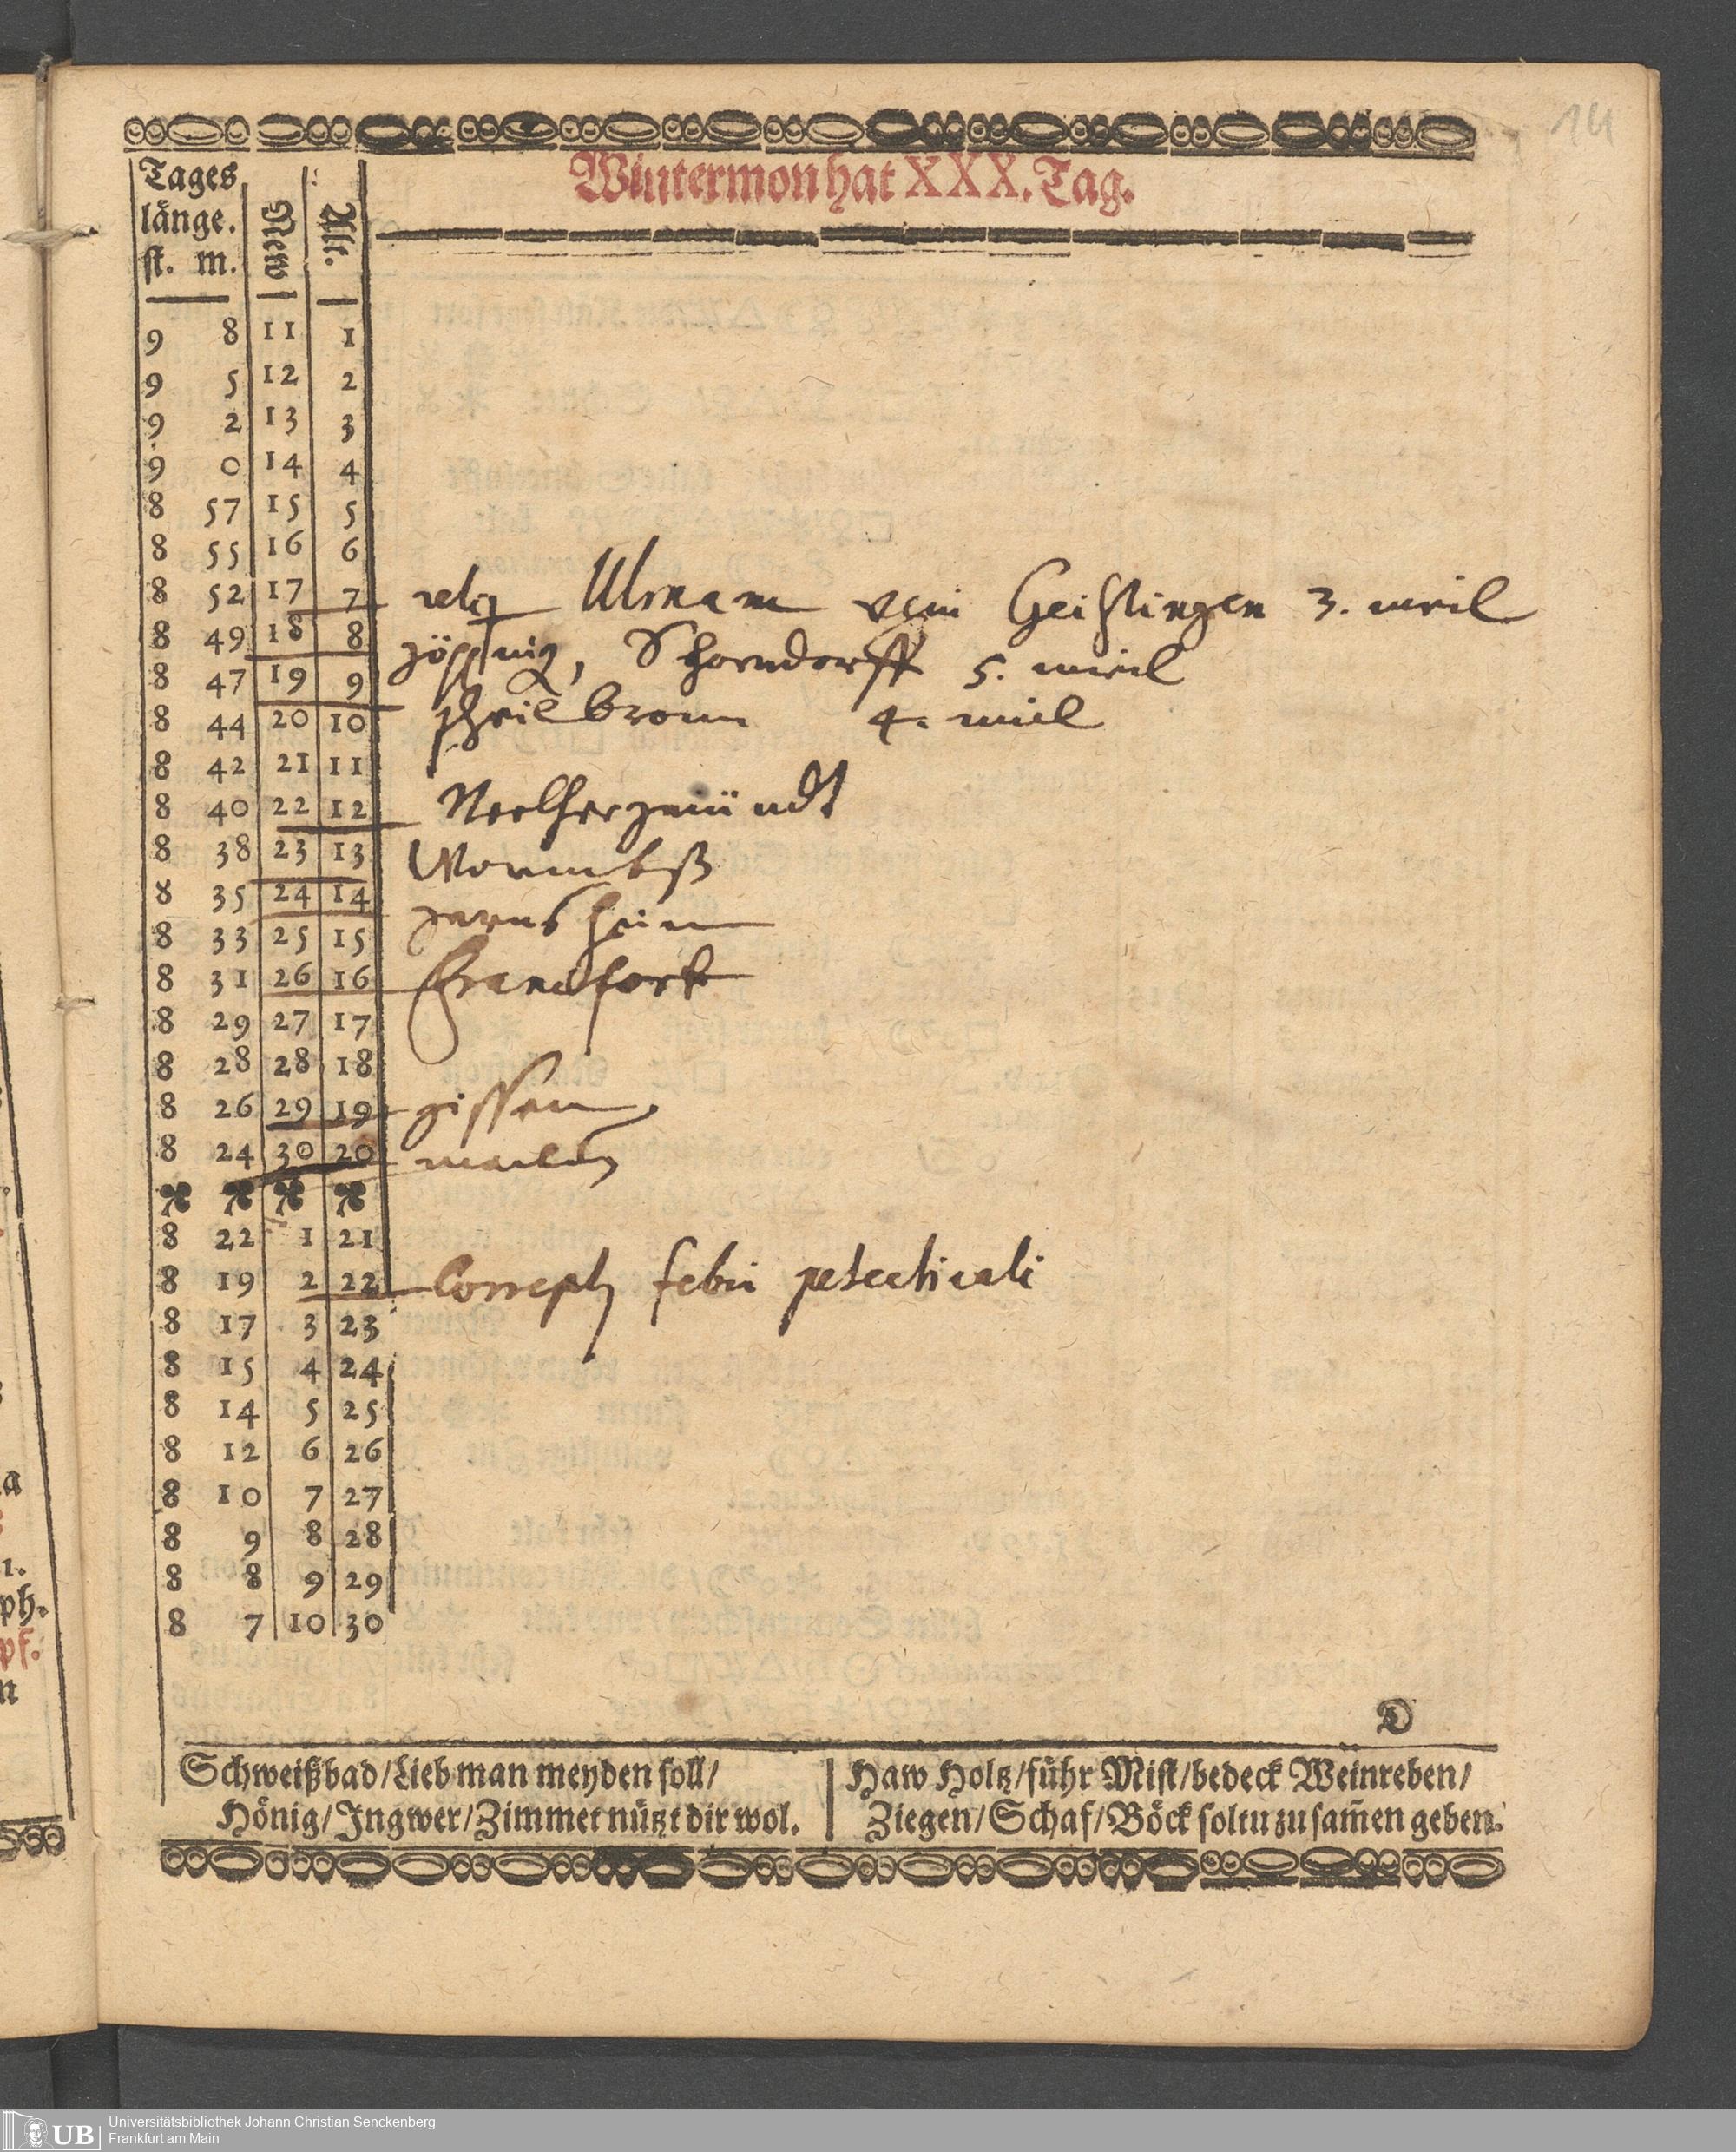 14
Wintermon hat XXX. Tag.
Tages
länge.
st. m.
New
Alt.
9 8 11 1
9 5 12 2
9 2 13 3
9 0 14 4
8 57 15 5
8 55 16 6
8 52 17 7 Ulmam Geißlingen 3. meil
8 49 18 8 Schorndorff 5. meil
8 47 19 9
8 44 20 10 heilbronn 4. meil
8 42 21 11
8 40 22 12
8 38 23 13 Wormbß
8 35 24 14 gernsheim
8 33 25 15
8 31 26 16 Franckfort
8 29 27 17
8 28 28 18
8 26 29 19 gissen
8 24 30 20
8 22 1 21
8 19 2 22 Corrept9 febri petechiali
8 17 3 23
8 15 4 24
8 14 5 25
8 12 6 26
8 10 7 27
8 9 8 28
8 8 9 29
8 7 10 30
D
Schweißbad/Lieb man meyden soll/
Hönig/Ingwer/Zimmet nützt dir wol.
Haw Holtz/führ Mist/bedeck Weinreben/
Ziegen/Schaf/Böck soltu zusam̃en geben.
UB
Universitätsbibliothek Johann Christian Senckenberg
Frankfurt am Main